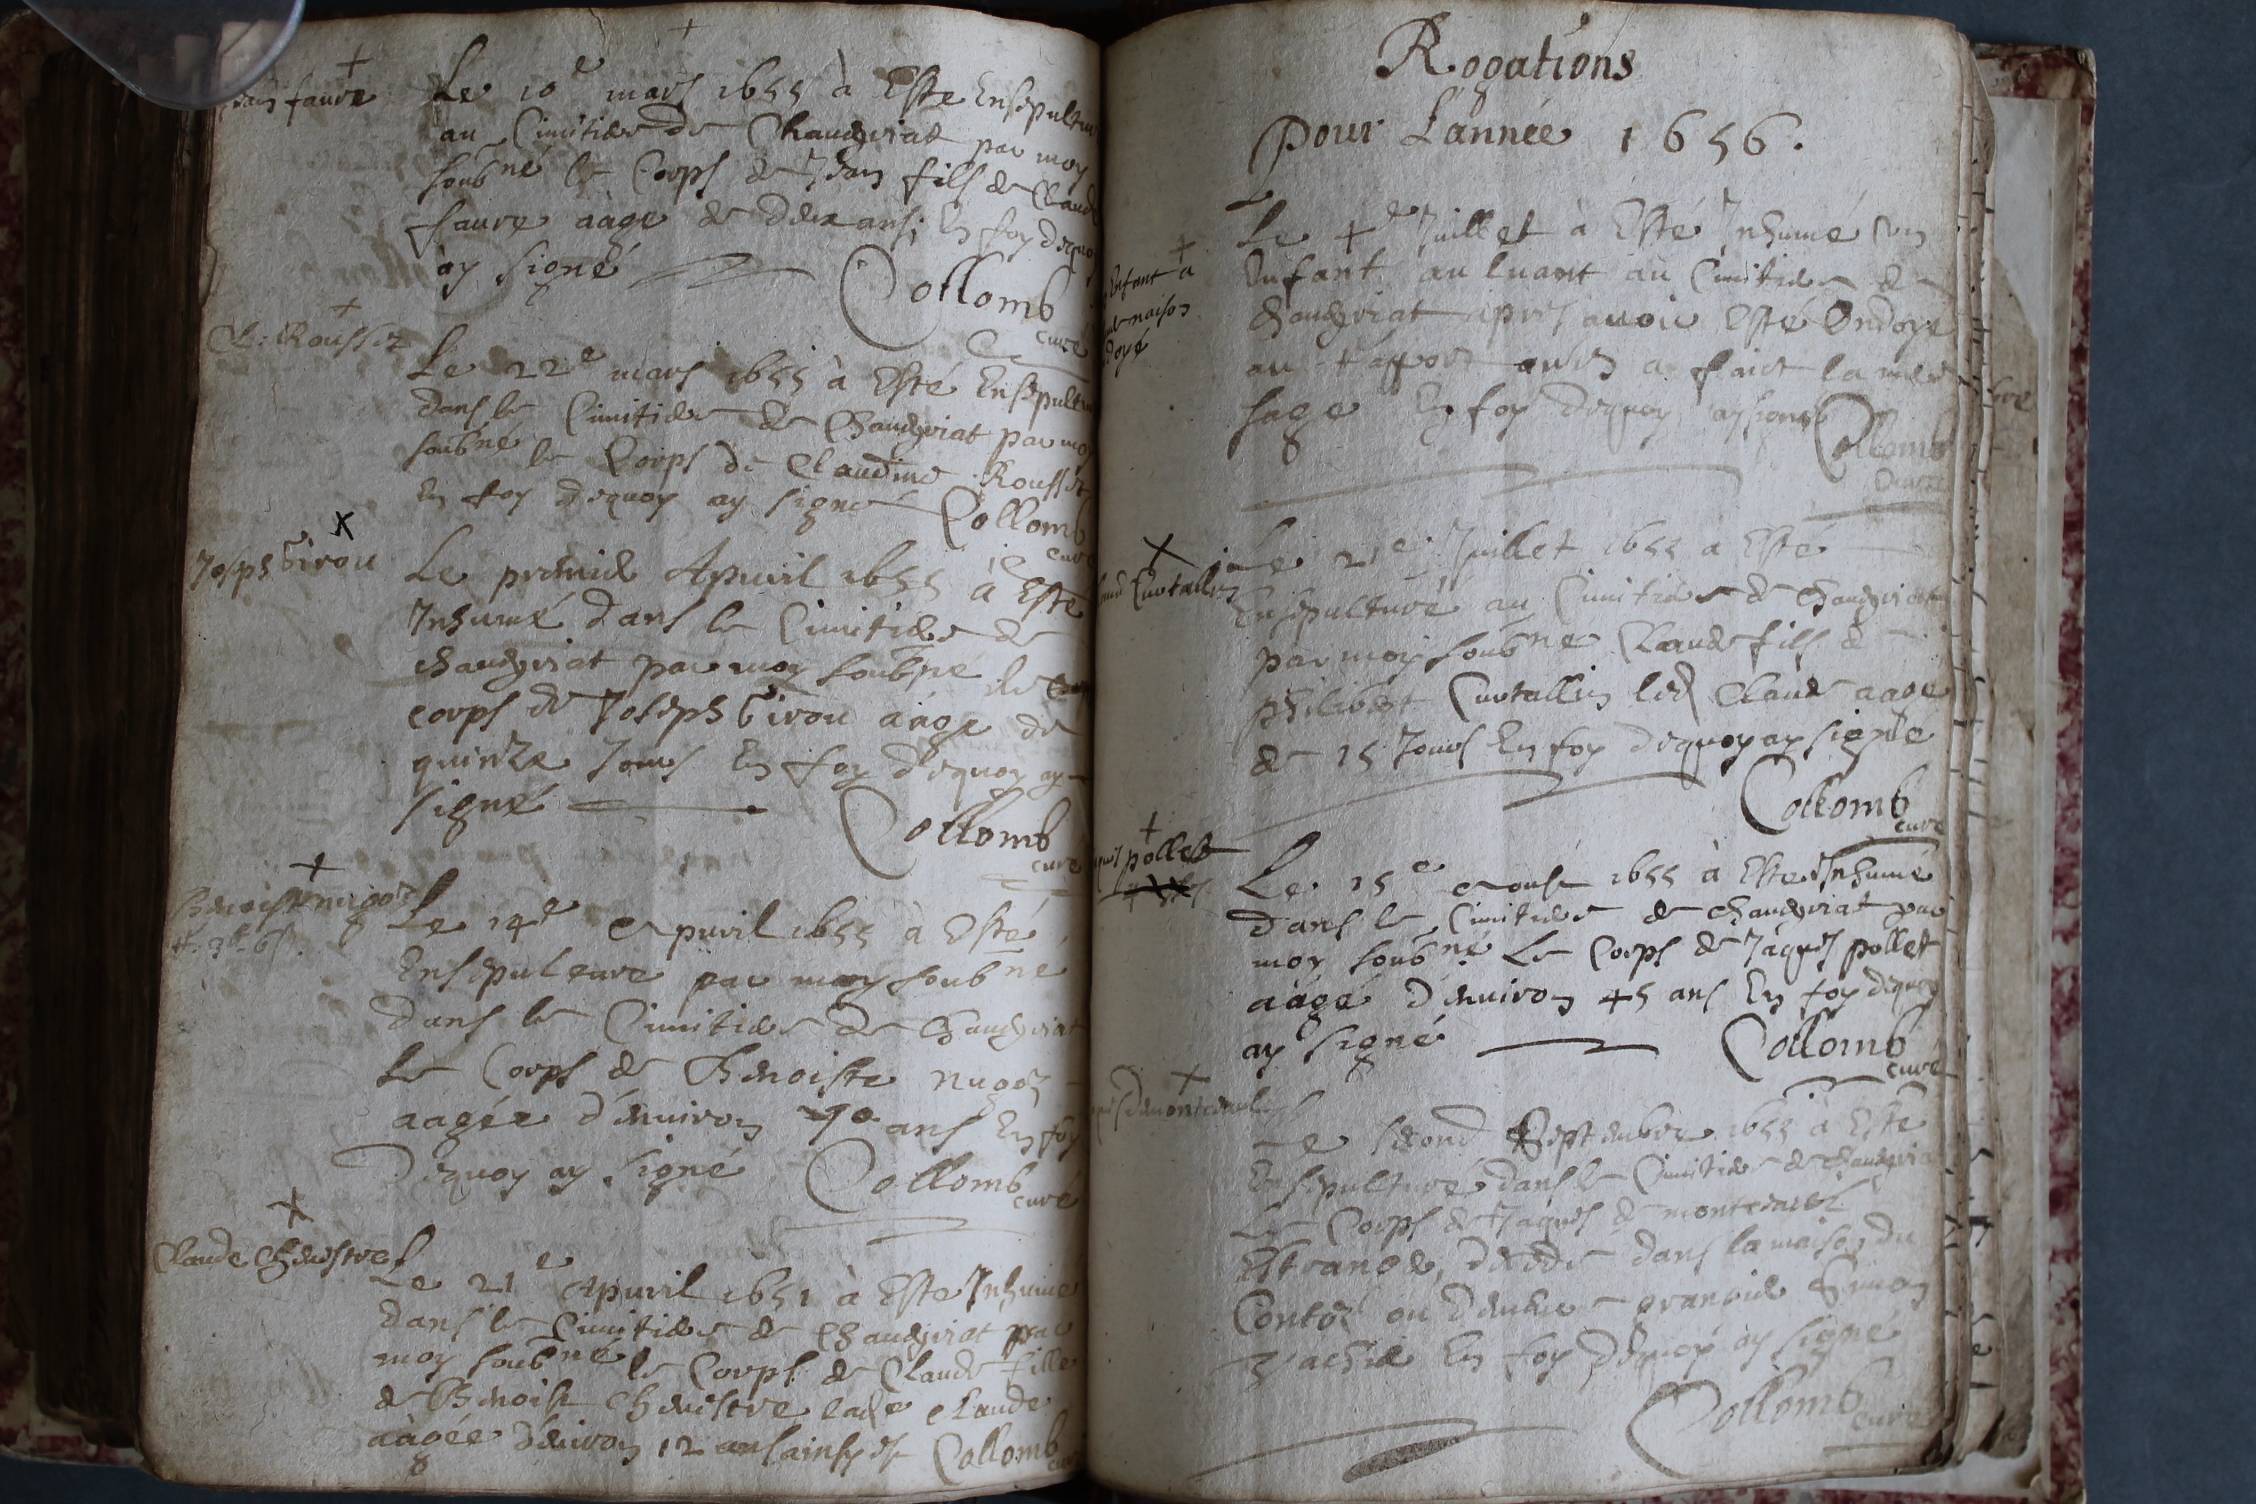 Jean faure
Le 10e mars 1655 à Esté Ensepulturé
au Cimitiere de Chaudyriat par moy
soubné le Corps de Jean fils de Claude
faure aage de deux ans; En foy dequoy
ay signé
Collomb
curé
Cl: Rousset
Le 22e mars 1655 à Esté Ensepulturé
dans le Cimitiere de Chaudyriat par moy
soubné le Corps de Claudine Rousset
En foy dequoy ay signé Collomb
curé
Joseph Girou
Le premier Apuril 1655 à Esté
Inhumé dans le Cimitiere de
chaudyriat par moy soubné le
corps de Joseph Girou aàge de
quinze Jours En foy dequoy ay
signé
Collomb
curé
Benoiste nugoz
Le 14e Apuril 1655 à Esté
Ensepulture par moy soubné
dans le Cimitiere de Chaudyriat
le Corps de Benoiste nugoz
aagée d'enuiron 70 ans En foy
dequoy ay signé Collomb
curé
Claude Cheuestre
Le 21e Apuril 1651 à Esté Inhumé
dans le Cimitiere de Chaudyriat par
moy soubné le Corps de Claude fille
de Benoist Cheuestre Claude
aàgée d'enuiron 12 ans Collomb
curé
Rogations
Pour L'année 1656.
Enfant a
maison
Le 4e Juillet à Esté Inhumé un
Enfant au Cimitiere de
Chaudyriat apres auoir Esté Ondoyé
au rapport a faict la mere
sage En foy dequoy ay signé Collomb
curé
Curtallin
Le 21e Juillet 1655 a Esté
Ensepulturé au Cimitiere de Chaudyriat
par moy soubné Claude fils de
philibert Curtallin led Claude aage
de 15 Jours En foy dequoy ay signé
Collomb
curé
pollet
Le 15e Aoust 1655 à Esté Inhumé
dans le Cimitiere de Chaudyriat par
moy soubné Le Corps de Jaques pollet
aàgé d'enuiron 45 ans En foy dequoy
ay signé
Collomb
curé
Le second Septembre 1655 à Esté
Ensepulturé dans le Cimitiere de Chaudyriat
Le Corps de Jaques de
Estranger, decedé dans la maison du
ou demeure granger
En foy dequoy ay signé
Collomb
curé